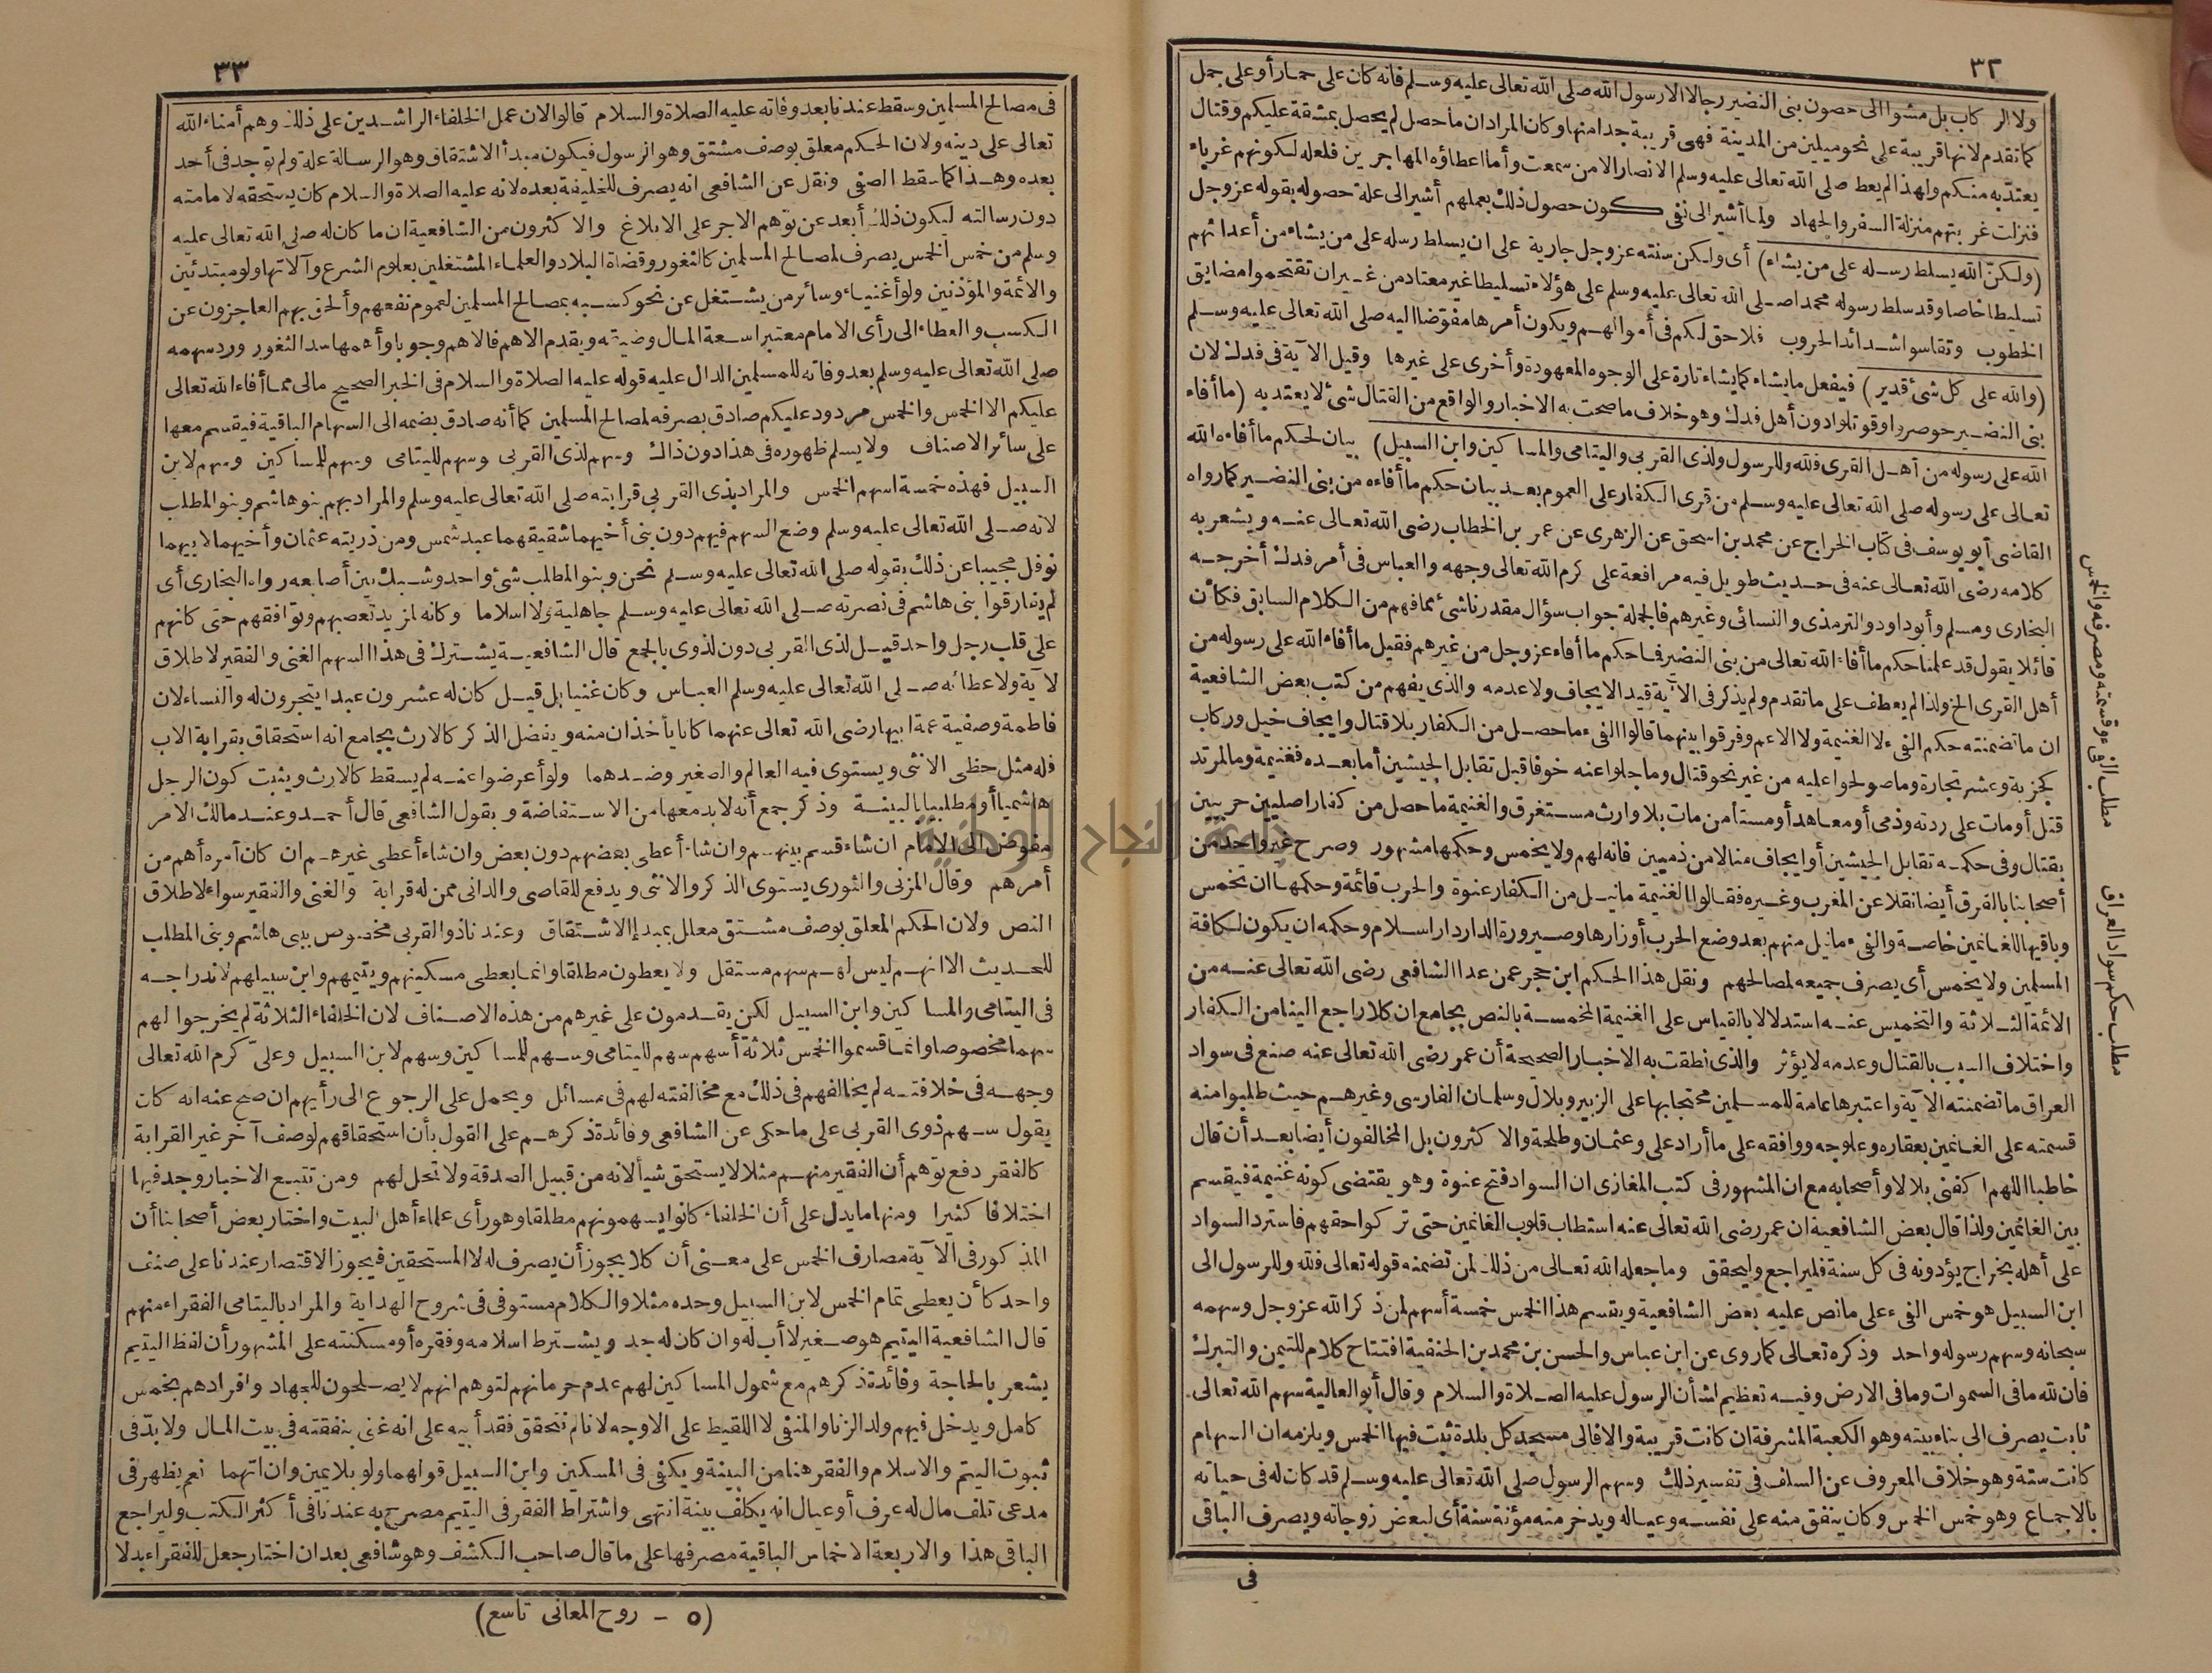 ٣٢
ولا الركاب بل مشوا الى حصون بنى النضير رجالا الا رسول الله صلى الله تعالى عليه وسلم فانه كان على حمار أو على جمل
كما تقدم لانها قريبة على نحو ميلين من المدينة فهى قريبة جدا منها وكان المراد ان ما حصل لم يحصل بمشقة عليكم وقتال
يعتدّ به منكم ولهذا لم يعط صلى الله تعالى عليه وسلم الانصار الا من سمعت وأما اعطاؤه المهاجرين فلعله لكونهم غرباء
فنزلت غربتهم منزلة السفر والجهاد ولما أشير الى نفى كون حصول ذلك بعملهم أشير الى علة حصوله بقوله عز وجل
(ولكنّ الله يسلط رسله على من يشاء) أى ولكن سنته عز وجل جارية على ان يسلط رسله على من يشاء من أعدائهم
تسليطا خاصا وقد سلط رسوله محمدا صلى الله تعالى عليه وسلم على هؤلاء تسليطا غير معتاد من غير ان تقتحموا مضايق
الخطوب وتقاسوا شدائد الحروب فلا حق لكم فى أموالهم ويكون أمرها مفوّضا اليه صلى الله تعالى عليه وسلم
(والله على كل شئ قدير) فيفعل ما يشاء كما يشاء تارة على الوجوه المعهودة وأخرى على غيرها وقيل الآية فى فدك لان
بنى النضير حوصروا وقوتلوا دون أهل فدك وهو خلاف ما صحت به الاخبار والواقع من القتال شئ لا يعتد به (ما أفاء
الله على رسوله من أهل القرى فلله وللرسول ولذى القربى واليتامى والمساكين وابن السبيل) بيان لحكم ما أفاءه الله
تعالى على رسوله صلى الله تعالى عليه وسلم من قرى الكفار على العموم بعد بيان حكم ما أفاءه من بنى النضير كما رواه
القاضى أبو يوسف فى كتاب الخراج عن محمد بن اسحق عن الزهرى عن عمر بن الخطاب رضى الله تعالى عنه ويشعر به
كلامه رضى الله تعالى عنه فى حديث طويل فيه مرافعة على كرم الله تعالى وجهه والعباس فى أمر فدك أخرجه
البخارى ومسلم وأبو داود والترمذى والنسائى وغيرهم فالجملة جواب سؤال مقدر ناشئ مما فهم من الكلام السابق فكأن
قائلا يقول قد علمنا حكم ما أفاء الله تعالى من بنى النضير فما حكم ما أفاء عز وجل من غيرهم فقيل ما أفاء الله على رسوله من
أهل القرى الخ ولذا لم يعطف على ما تقدم ولم يذكر فى الآية قيد الايجاف ولا عدمه والذى يفهم من كتب بعض الشافعية
ان ما تضمنته حكم الفئ لا الغنيمة ولا الاعم وفرقوا بينهما قالوا الفئ ما حصل من الكفار بلا قتال وايجاف خيل وركاب
كجزية وعشر تجارة وما صولحوا عليه من غير نحو قتال وما جلوا عنه خوفا قبل تقابل الجيشين أما بعده فغنيمة ومال مرتد
قتل أو مات على ردته وذمى أو معاهد أو مستأمن مات بلا وارث مستغرق والغنيمة ما حصل من كفار اصليين حربيين
بقتال وفى حكمه تقابل الجيشين أو ايجاف منا لا من ذميين فانه لهم ولا يخمس وحكمها مشهور وصرح غير واحد من
أصحابنا بالفرق أيضا نقلا عن المغرب وغيره فقالوا الغنيمة ما نيل من الكفار عنوة والحرب قائمة وحكمها ان يخمس
وباقيها للغانمين خاصة والفئ ما نيل منهم بعد وضع الحرب أوزارها وصيرورة الدار دار اسلام وحكمه ان يكون لكافة
المسلمين ولا يخمس أى يصرف جميعه لمصالحهم ونقل هذا الحكم ابن حجر عمن عدا الشافعى رضى الله تعالى عنه من
الائمة الثلاثة والتخميس عنه استدلالا بالقياس على الغنيمة المخمسة بالنص بجامع ان كلا راجع الينا من الكفار
واختلاف السبب بالقتال وعدمه لا يؤثر والذى نطقت به الاخبار الصحيحة أن عمر رضى الله تعالى عنه صنع فى سواد
العراق ما تضمنته الآية واعتبرها عامة للمسلمين محتجا بها على الزبير وبلال وسلمان الفارسى وغيرهم حيث طلبوا منه
قسمته على الغانمين بعقاره وعلوجه ووافقه على ما أراد على وعثمان وطلحة والاكثرون بل المخالفون أيضا بعد أن قال
خاطبا اللهم اكفنى بلالا وأصحابه مع ان المشهور فى كتب المغازى ان السواد فتح عنوة وهو يقتضى كونه غنيمة فيقسم
بين الغانمين ولذا قال بعض الشافعية ان عمر رضى الله تعالى عنه استطاب قلوب الغانمين حتى تركوا حقهم فاسترد السواد
على أهله بخراج يؤدونه فى كل سنة فليراجع وليحقق وما جعله الله تعالى من ذلك لمن تضمنه قوله تعالى فلله وللرسول الى
ابن السبيل هو خمس الفئ على ما نص عليه بعض الشافعية ويقسم هذا الخمس خمسة أسهم لمن ذكر الله عز وجل وسهمه
سبحانه وسهم رسوله واحد وذكره تعالى كما روى عن ابن عباس والحسن بن محمد بن الحنفية افتتاح كلام للتيمن والتبرك
فان لله ما فى السموات وما فى الارض وفيه تعظيم لشأن الرسول عليه الصلاة والسلام وقال أبو العالية سهم الله تعالى
ثابت يصرف الى بناء بيته وهو الكعبة المشرفة ان كانت قريبة والا فالى مسجد كل بلدة ثبت فيها الخمس ويلزمه ان السهام
كانت ستة وهو خلاف المعروف عن السلف فى تفسير ذلك وسهم الرسول صلى الله تعالى عليه وسلم قد كان له فى حياته
بالاجماع وهو خمس الخمس وكان ينفق منه على نفسه وعياله ويدخر منه مؤنة سنة أى لبعض زوجاته ويصرف الباقى
فى
مطلب الفئ وقسمته ومصرفه والخمس
مطلب حكم سواد العراق
٣٣
فى مصالح المسلمين وسقط عندنا بعد وفاته عليه الصلاة والسلام قالوا لان عمل الخلفاء الراشدين على ذلك وهم أمناء الله
تعالى على دينه ولان الحكم معلق بوصف مشتق وهو الرسول فيكون مبدأ الاشتقاق وهو الرسالة علة ولم توجد فى أحد
بعده وهذا كما سقط الصفى ونقل عن الشافعى انه يصرف للخليفة بعده لانه عليه الصلاة والسلام كان يستحقه لامامته
دون رسالته ليكون ذلك أبعد عن توهم الاجر على الابلاغ والاكثرون من الشافعية ان ما كان له صلى الله تعالى عليه
وسلم من خمس الخمس يصرف لمصالح المسلمين كالثغور وقضاة البلاد والعلماء المشتغلين بعلوم الشرع وآلاتها ولو مبتدئين
والائمة والمؤذنين ولو أغنياء وسائر من يشتغل عن نحو كسبه بمصالح المسلمين لعموم نفعهم وألحق بهم العاجزون عن
الكسب والعطاء الى رأى الامام معتبرا سعة المال وضيقه ويقدم الاهم فالاهم وجوبا وأهمها سد الثغور ورد سهمه
صلى الله تعالى عليه وسلم بعد وفاته للمسلمين الدال عليه قوله عليه الصلاة والسلام فى الخبر الصحيح مالى مما أفاء الله تعالى
عليكم الا الخمس والخمس مردود عليكم صادق بصرفه لمصالح المسلمين كما أنه صادق بضمه الى السهام الباقية فيقسم معها
على سائر الاصناف ولا يسلم ظهوره فى هذا دون ذاك وسهم لذى القربى وسهم لليتامى وسهم للمساكين وسهم لابن
السبيل فهذه خمسة اسهم الخمس والمراد بذى القربى قرابته صلى الله تعالى عليه وسلم والمراد بهم بنو هاشم وبنو المطلب
لانه صلى الله تعالى عليه وسلم وضع السهم فيهم دون بنى أخيهما شقيقهما عبد شمس ومن ذريته عثمان وأخيهما لابيهما
نوفل مجيبا عن ذلك بقوله صلى الله تعالى عليه وسلم نحن وبنو المطلب شئ واحد وشبك بين أصابعه رواه البخارى أى
لم يفارقوا بنى هاشم فى نصرته صلى الله تعالى عليه وسلم جاهلية ولا اسلاما وكانه لمزيد تعصبهم وتوافقهم حتى كانهم
على قلب رجل واحد قيل لذى القربى دون لذوى بالجمع قال الشافعية يشترك فى هذا السهم الغنى والفقير لاطلاق
لآية ولاعطائه صلى الله تعالى عليه وسلم العباس وكان غنيا بل قيل كان له عشرون عبدا يتجرون له والنساء لان
فاطمة وصفية عمة ابيها رضى الله تعالى عنهما كانا يأخذان منه ويفضل الذكر كالارث بجامع انه استحقاق بقرابة الاب
فله مثل حظى الانثى ويستوى فيه العالم والصغير وضدهما ولو أعرضوا عنه لم يسقط كالارث ويثبت كون الرجل
هاشميا أو مطلبيا بالبينة وذكر جمع أنه لا بد معها من الاستفاضة وبقول الشافعى قال أحمد وعند مالك الامر
مفوض الى الامام ان شاء قسم بينهم وان شاء أعطى بعضهم دون بعض وان شاء أعطى غيرهم ان كان أمره أهم من
أمرهم وقال المزنى والثورى يستوى الذكر والانثى ويدفع للقاصى والدانى ممن له قرابة والغنى والفقير سواء لاطلاق
النص ولان الحكم المعلق بوصف مشتق معلل بمبدإ الاشتقاق وعندنا ذو القربى مخصوص ببنى هاشم وبنى المطلب
للحديث الا انهم ليس لهم سهم مستقل ولا يعطون مطلقا وانما يعطى مسكينهم ويتيمهم وابن سبيلهم لاندراجه
فى اليتامى والمساكين وابن السبيل لكن يقدمون على غيرهم من هذه الاصناف لان الخلفاء الثلاثة لم يخرجوا لهم
سهما مخصوصا وانما قسموا الخمس ثلاثة أسهم سهم لليتامى وسهم للمساكين وسهم لابن السبيل وعلىّ كرم الله تعالى
وجهه فى خلافته لم يخالفهم فى ذلك مع مخالفته لهم فى مسائل ويحمل على الرجوع الى رأيهم ان صح عنه انه كان
يقول سهم ذوى القربى على ما حكى عن الشافعى وفائدة ذكرهم على القول بأن استحقاقهم لوصف آخر غير القرابة
كالفقر دفع توهم أن الفقير منهم مثلا لا يستحق شيأ لانه من قبيل الصدقة ولا تحل لهم ومن تتبع الاخبار وجد فيها
اختلافا كثيرا ومنها ما يدل على أن الخلفاء كانوا يسهمونهم مطلقا وهو رأى علماء أهل البيت واختار بعض أصحابنا أن
المذكور فى الآية مصارف الخمس على معنى أن كلا يجوز أن يصرف له لا المستحقين فيجوز الاقتصار عندنا على صنف
واحد كأن يعطى تمام الخمس لابن السبيل وحده مثلا والكلام مستوفى فى شروح الهداية والمراد باليتامى الفقراء منهم
قال الشافعية اليتيم هو صغير لا أب له وان كان له جد ويشترط اسلامه وفقره أو مسكنته على المشهور أن لفظ اليتيم
يشعر بالحاجة وفائدة ذكرهم مع شمول المساكين لهم عدم حرمانهم لتوهم انهم لا يصلحون للجهاد وافرادهم بخمس
كامل ويدخل فيهم ولد الزنا والمنفى لا اللقيط على الاوجه لانا لم نتحقق فقد أبيه على انه غنى بنفقته فى بيت المال ولا بدّ فى
ثبوت اليتم والاسلام والفقر هنا من البينة ويكفى فى المسكين وابن السبيل قولهما ولو بلا يمين وان اتهما نعم يظهر فى
مدعى تلف مال له عرف أو عيال انه يكلف بينة انتهى واشتراط الفقر فى اليتيم مصرح به عندنا فى أكثر الكتب وليراجع
الباقى هذا والاربعة الاخماس الباقية مصرفها على ما قال صاحب الكشف وهو شافعى بعد ان اختار جعل للفقراء بدلا
(٥ - روح المعانى تاسع)
جامعة النجاح الوطنية